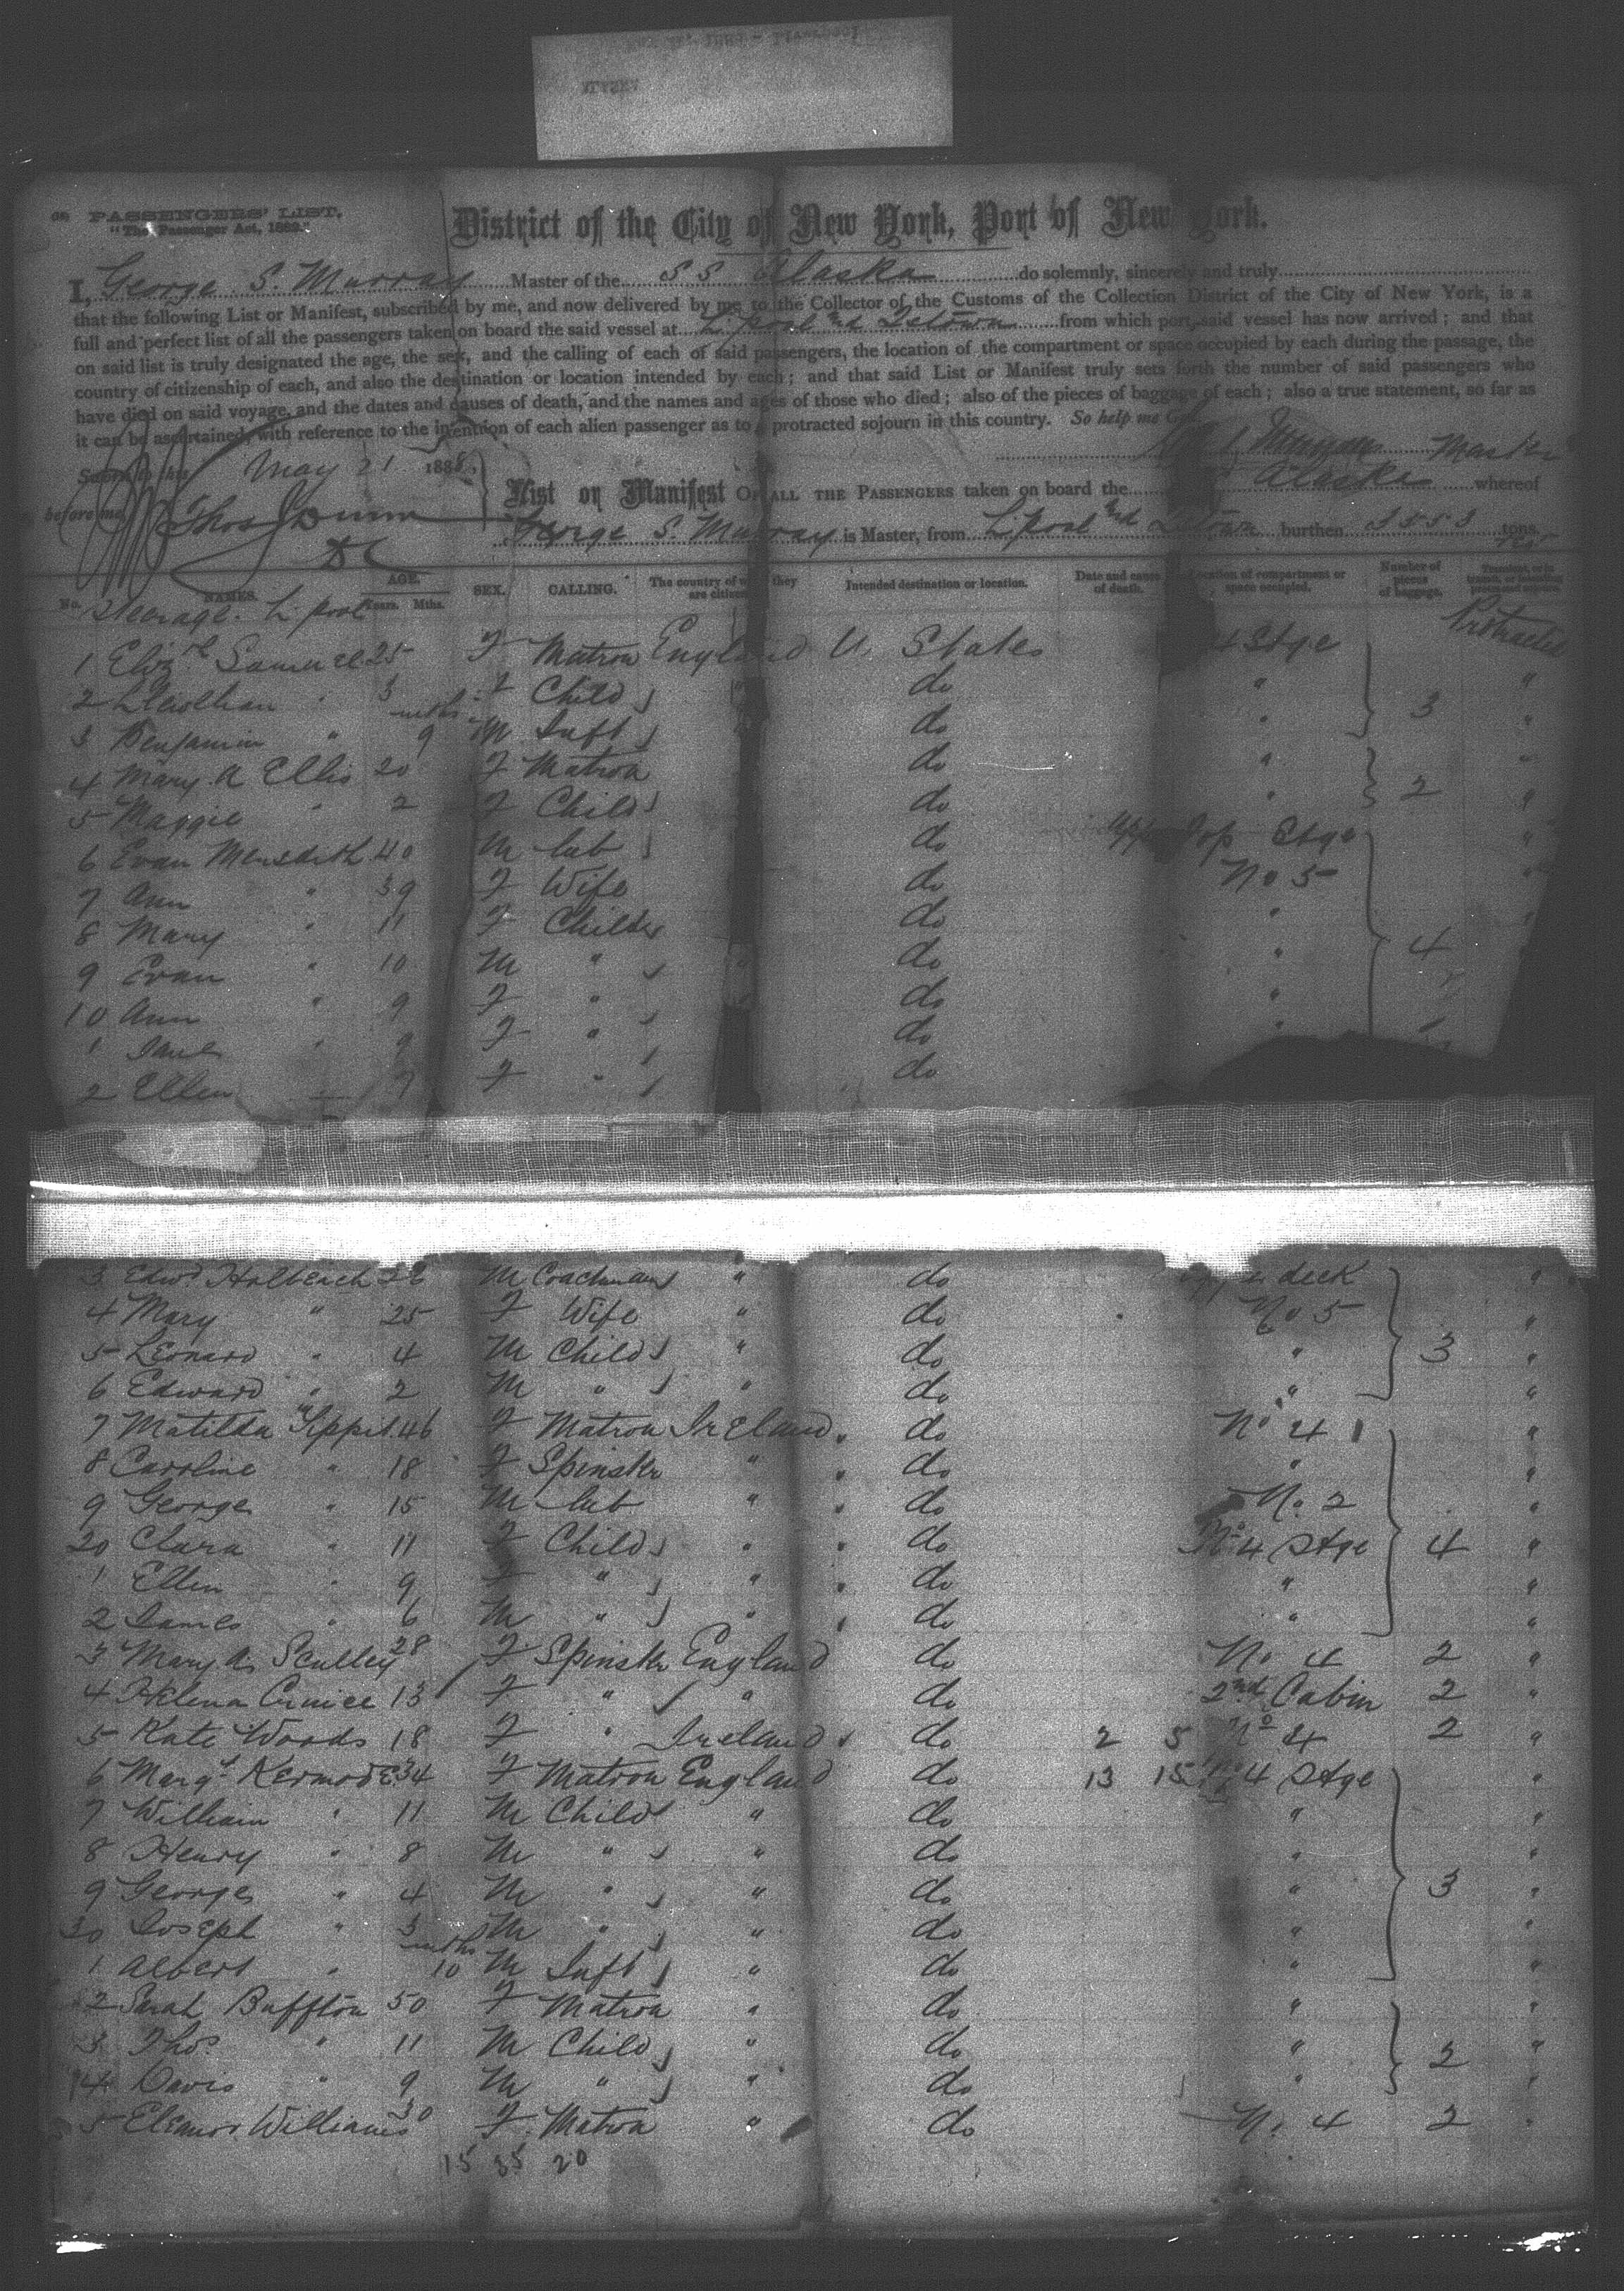 PASSENGERS' LIST.
"The Passenger Act, 1882."
District of the City of New York, Port of New York.
I, George S. Murray Master of the SS Alaska do solemnly, sincerely and truly
that the following List or Manifest, subscribed by me, and now delivered by me to the Collector of the Customs of the Collection District of the City of New York, is a
full and perfect list of all the passengers taken on board the said vessel at L'pool and Q'town from which port said vessel has now arrived; and that
on said list is truly designated the age, the sex, and the calling of each of said passengers, the location of the compartment or space occupied by each during the passage, the
country of citizenship of each, and also the destination or location intended by each; and that said List or Manifest truly sets forth the number of said passengers who
have died on said voyage, and the dates and causes of death, and the names and ages of those who died; also of the pieces of baggage of each; also a true statement, so far as
it can be ascertained, with reference to the intention of each alien passenger as to a protracted sojourn in this country. So help me
Murray Master
Sworn to this May 21 1888
before me
List or Manifest OF ALL THE PASSENGERS taken on board the Alaska whereof
George S. Murray is Master, from L'pool and Q'town burthen tons
No. NAMES. AGE. Years. Mths. SEX. CALLING. The country of they are citizens Intended destination or location. Date and cause of death. Location of compartment or space occupied. Number of pieces of baggage. Transient, or in transit, or intending protracted sojourn.
Steerage. L'pool
1 Elizth Samuel 25 F Matron England U. States 4 Stge Protracted
2 " 3 Child do " "
3 Benjamin " mths 9 M Inft do " 3 "
4 Mary A Ellis 20 F Matron do " "
5 Maggie " 2 F Child do " 2 "
6 Evan Meredith 40 M Lab do Stge "
7 Ann " 39 F Wife do No 5 "
8 Mary " 11 F Child do " "
9 Evan " 10 M " do " 4
10 Ann " 9 F " do "
1 Jane " 9 F " do "
2 Ellen 7 F " do
3 Edwd Holbeach M Coachman " do deck "
4 Mary " 25 F Wife " do No 5 "
5 Leonard " 4 M Child " do " 3 "
6 Edward " 2 M " " do " "
7 Matilda Tippet 46 F Matron Ireland do No 4 "
8 Caroline " 18 F Spinster " do " "
9 George " 15 M Lab " do No 2 "
20 Clara " 11 F Child " do No 4 Stge 4 "
1 Ellen " 9 F " " do " "
2 James " 6 M " " do " "
3 Mary A. Sculley 28 F Spinster England do No 4 2 "
4 Helena 13 F " " do 2nd Cabin 2 "
5 Kate Woods 18 F " Ireland do 2 5 No 4 2 "
6 Margt Kermode 34 F Matron England do 13 15 No 4 Stge "
7 William " 11 M Child " do " "
8 Henry " 8 M " " do " "
9 George " 4 M " " do " 3 "
30 Joseph " 3 M " " do " "
1 Albert " mths 10 M Inft " do " "
2 Sarah Buffton 50 F Matron " do " "
3 Thos. " 11 M Child " do " 2 "
4 David " 9 M " " do " "
5 Eleanor Williams 30 F Matron " do No 4 2 "
15 35 20